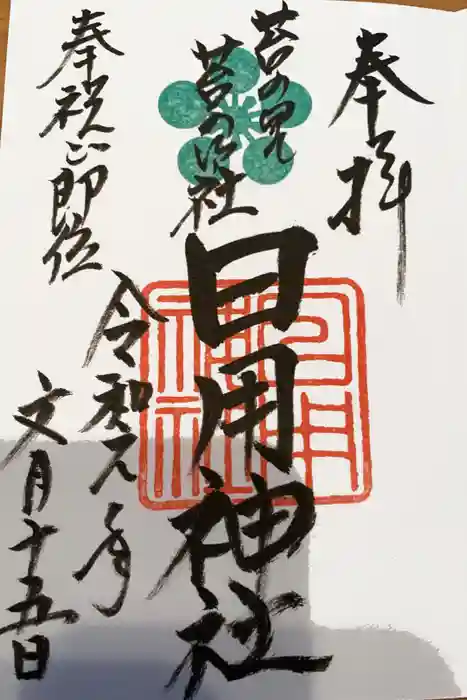 奉拝
苔の里
苔の社
日用神社
令和元年
文月十五日
奉祝ご即位